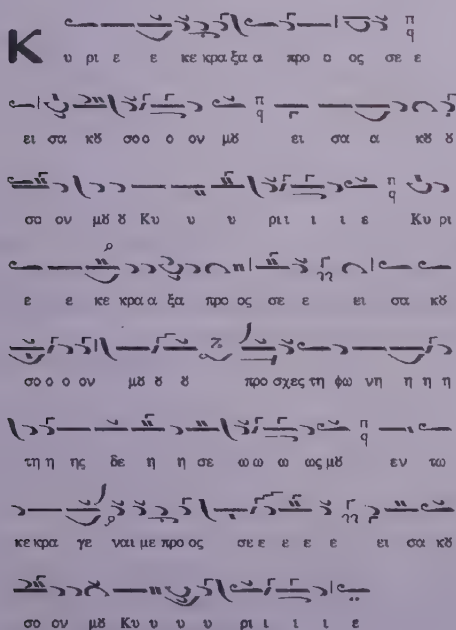 Κ υ ρι ε ε κε κρα ξα α προ ο ος σε ε
ει σα κȣ σο ο ο ον μȣ ει σα α κȣ ȣ
σα ον μȣ ȣ Κυ υ υ ρι ι ι ι ε Κυ ρι
ε ε κε κρα α ξα προ ος σε ε ει σα κȣ
σο ο ο ον μȣ ȣ ȣ προ σχες τη φω νη η η η
τη η ης δε η η σε ω ω ω ως μȣ εν τω
κε κρα γε ναι με προ ος σε ε ε ε ε ει σα κȣ
σο ον μȣ Κυ υ υ υ ρι ι ι ι ε